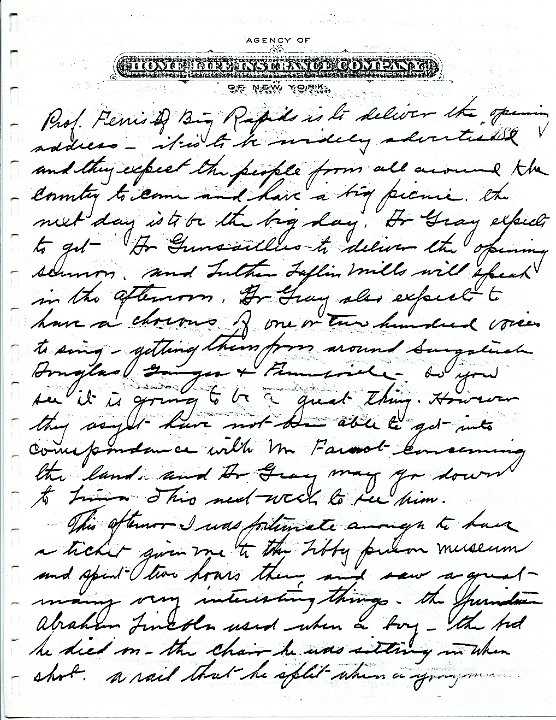 AGENCY OF
HOME LIFE INSURANCE COMPANY
OF NEW YORK.
Prof. Ferris of Big Rapids is to deliver the opening
address - it is to be widely advertised
and they expect the people from all around the
country to come and have a big picnic. the
next day is to be the big day. Dr Gray expects
to get Dr Gunsaullus to deliver the opening
sermon. and Luther Laflin Mills will speak
in the afternoon. Dr Gray also expects to
have a chorous of one or two hundred voices
to sing - getting them from around Saugatuck
Douglas Ganges & Fennville - So you
see it is going to be a great thing. However
they as yet have not been able to get into
correspondance with Mr concerning
the land. and Dr Gray may go down
to Lima Ohio next week to see him.
This afternoon I was fortunate enough to have
a ticket given me to the Libby prison museum
and spent two hours there and saw a great
many very interesting things - the furniture
Abraham Lincoln used when a boy - the bed
he died on - the chair he was sitting in when
shot. a rail that he split when a young